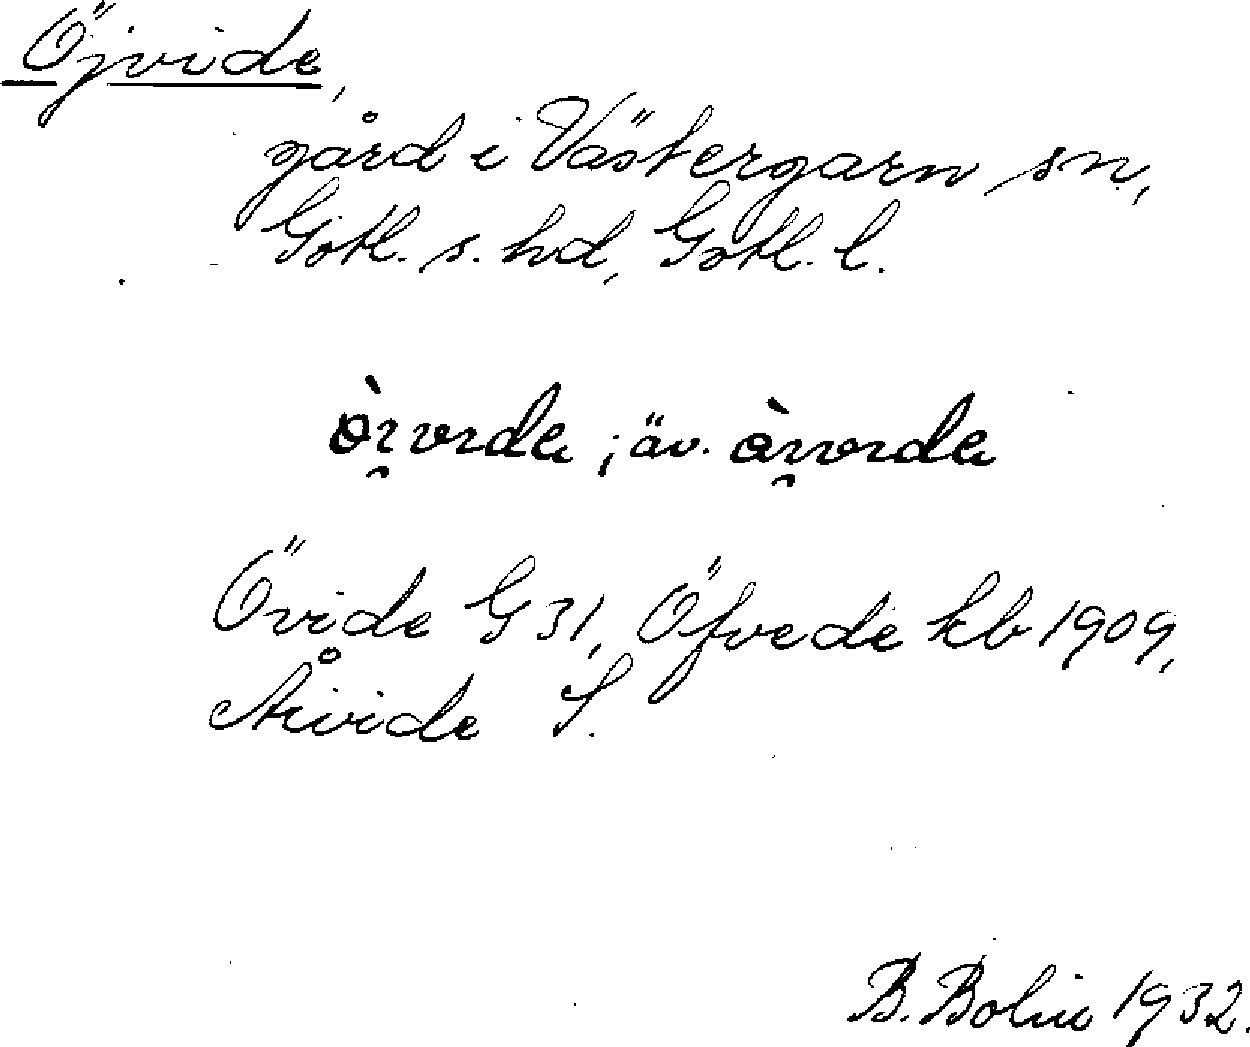 Öjvide,
gård i Västergarn sn,
Gotl. s. hd, Gotl. l.
; äv.
Övide G 31, Öfvede kb 1909,
Åivide S.
B. Bolin 1932.